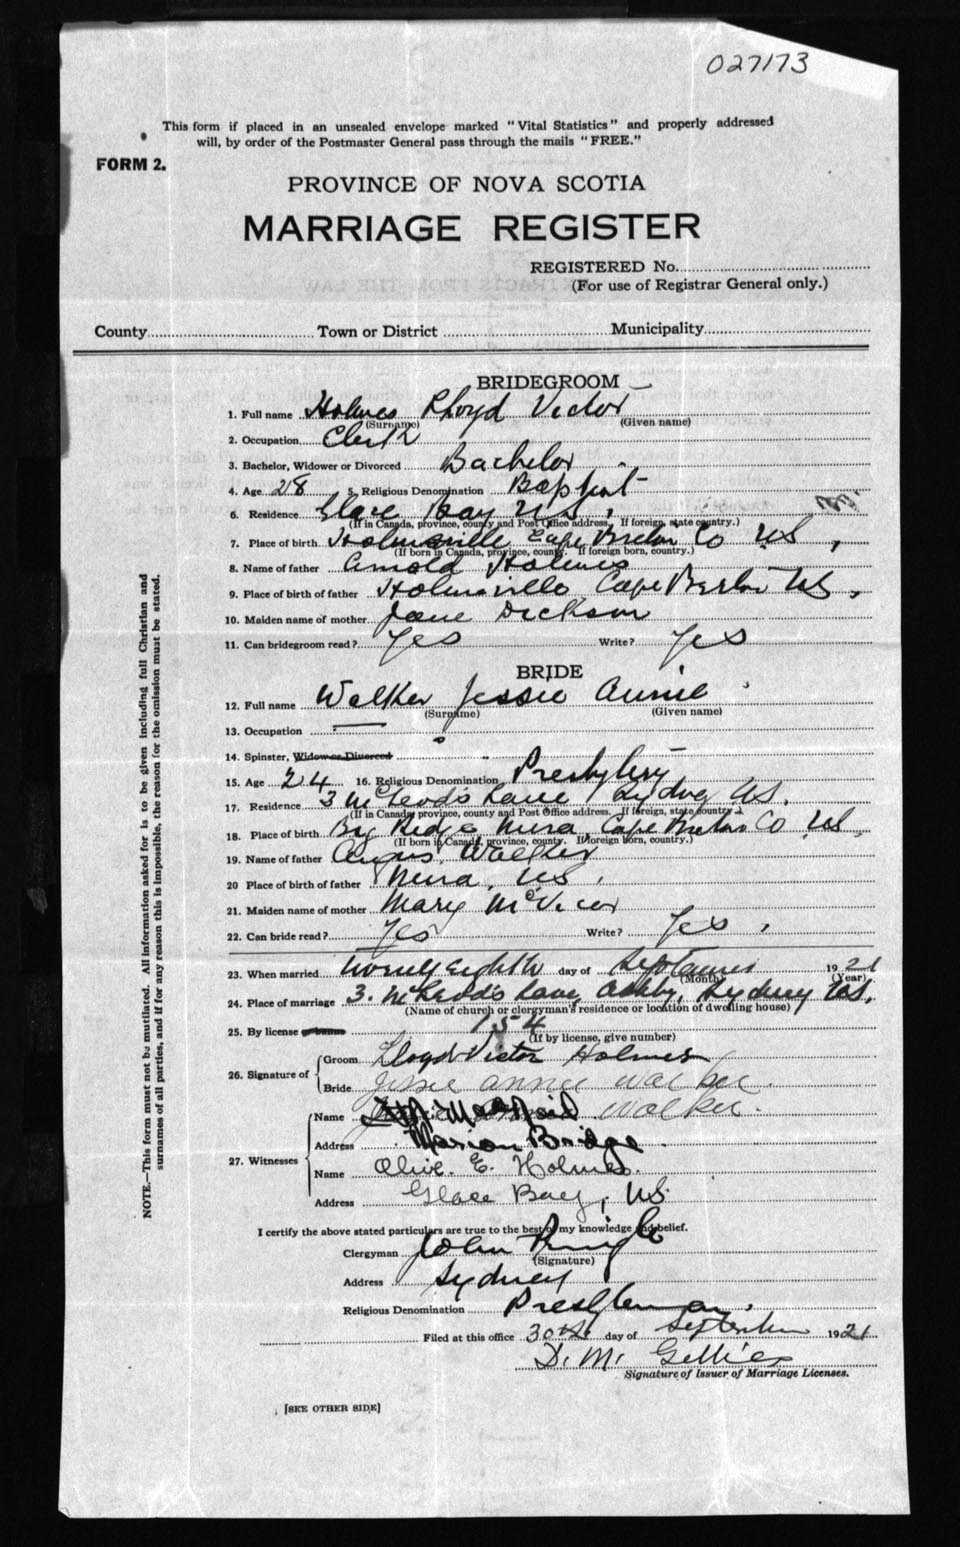 027173
This form if placed in an unsealed envelope marked "Vital Statistics" and properly addressed
will, by order of the Postmaster General pass through the mails "FREE."
FORM 2.
PROVINCE OF NOVA SCOTIA
MARRIAGE REGISTER
REGISTERED No.
(For use of Registrar General only.)
County Town or District Municipality
BRIDEGROOM
1. Full name Holmes Lloyd Victor
(Surname) (Given name)
2. Occupation Clerk
3. Bachelor, Widower or Divorced Bachelor
4. Age 28 5. Religious Denomination Baptist
6. Residence Glace Bay NS.
(If in Canada, province, county and Post Office address. If foreign, state country.)
7. Place of birth Holmesville Cape Breton Co NS
(If born in Canada, province, county. If foreign born, country.)
8. Name of father Arnold Holmes
9. Place of birth of father Holmsville Cape Breton NS.
10. Maiden name of mother Jane Dickson
11. Can bridegroom read? Yes Write? Yes
BRIDE
12. Full name Walker Jessie Annie
(Surname) (Given name)
13. Occupation
14. Spinster, Widow or Divorced
15. Age 24 16. Religious Denomination Presbytery
17. Residence 3 McLeod's Lane Sydney NS.
(If in Canada, province, county and Post Office address. If foreign, state country.)
18. Place of birth Big Ridge Mira, Cape Breton Co NS.
(If born in Canada, province, county. If foreign born, country.)
19. Name of father Angus Walker
20 Place of birth of father Mira, NS.
21. Maiden name of mother Mary McVicar
22. Can bride read? Yes Write? Yes
23. When married twenty eighth day of September 1921
(Month) (Year)
24. Place of marriage 3. McLeod's Lane, Ashby, Sydney N.S.
(Name of church or clergyman's residence or location of dwelling house)
25. By license 154
(If by license, give number)
26. Signature of Groom Lloyd Victor Holmes
Bride Jessie Annie Walker
27. Witnesses
Name MacNeil Walker
Address Marion Bridge
Name Olive. E. Holmes.
Address Glace Bay, N.S.
I certify the above stated particulars are true to the best of my knowledge and belief.
Clergyman John Pringle
(Signature)
Address Sydney
Religious Denomination Presbyterian.
Filed at this office 30th day of September 1921
D. M. Gillies
Signature of Issuer of Marriage Licenses.
[SEE OTHER SIDE]
NOTE.—This form must not be mutilated. All information asked for is to be given including full Christian and
surnames of all parties, and if for any reason this is impossible, the reason for the omission must be stated.